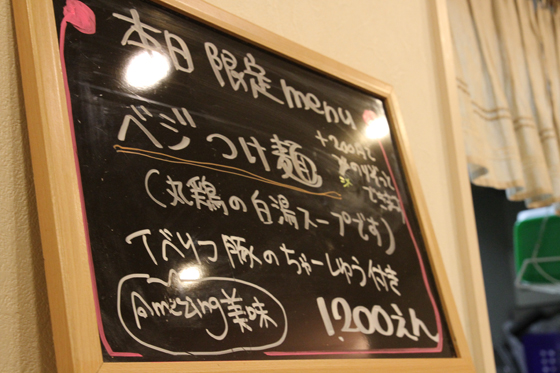 本日限定menu
ベジつけ麺
+200円で
できます
(丸鶏の白湯スープです)
イベリコ豚のちゃーしゅう付き
Amazing美味
1,200えん